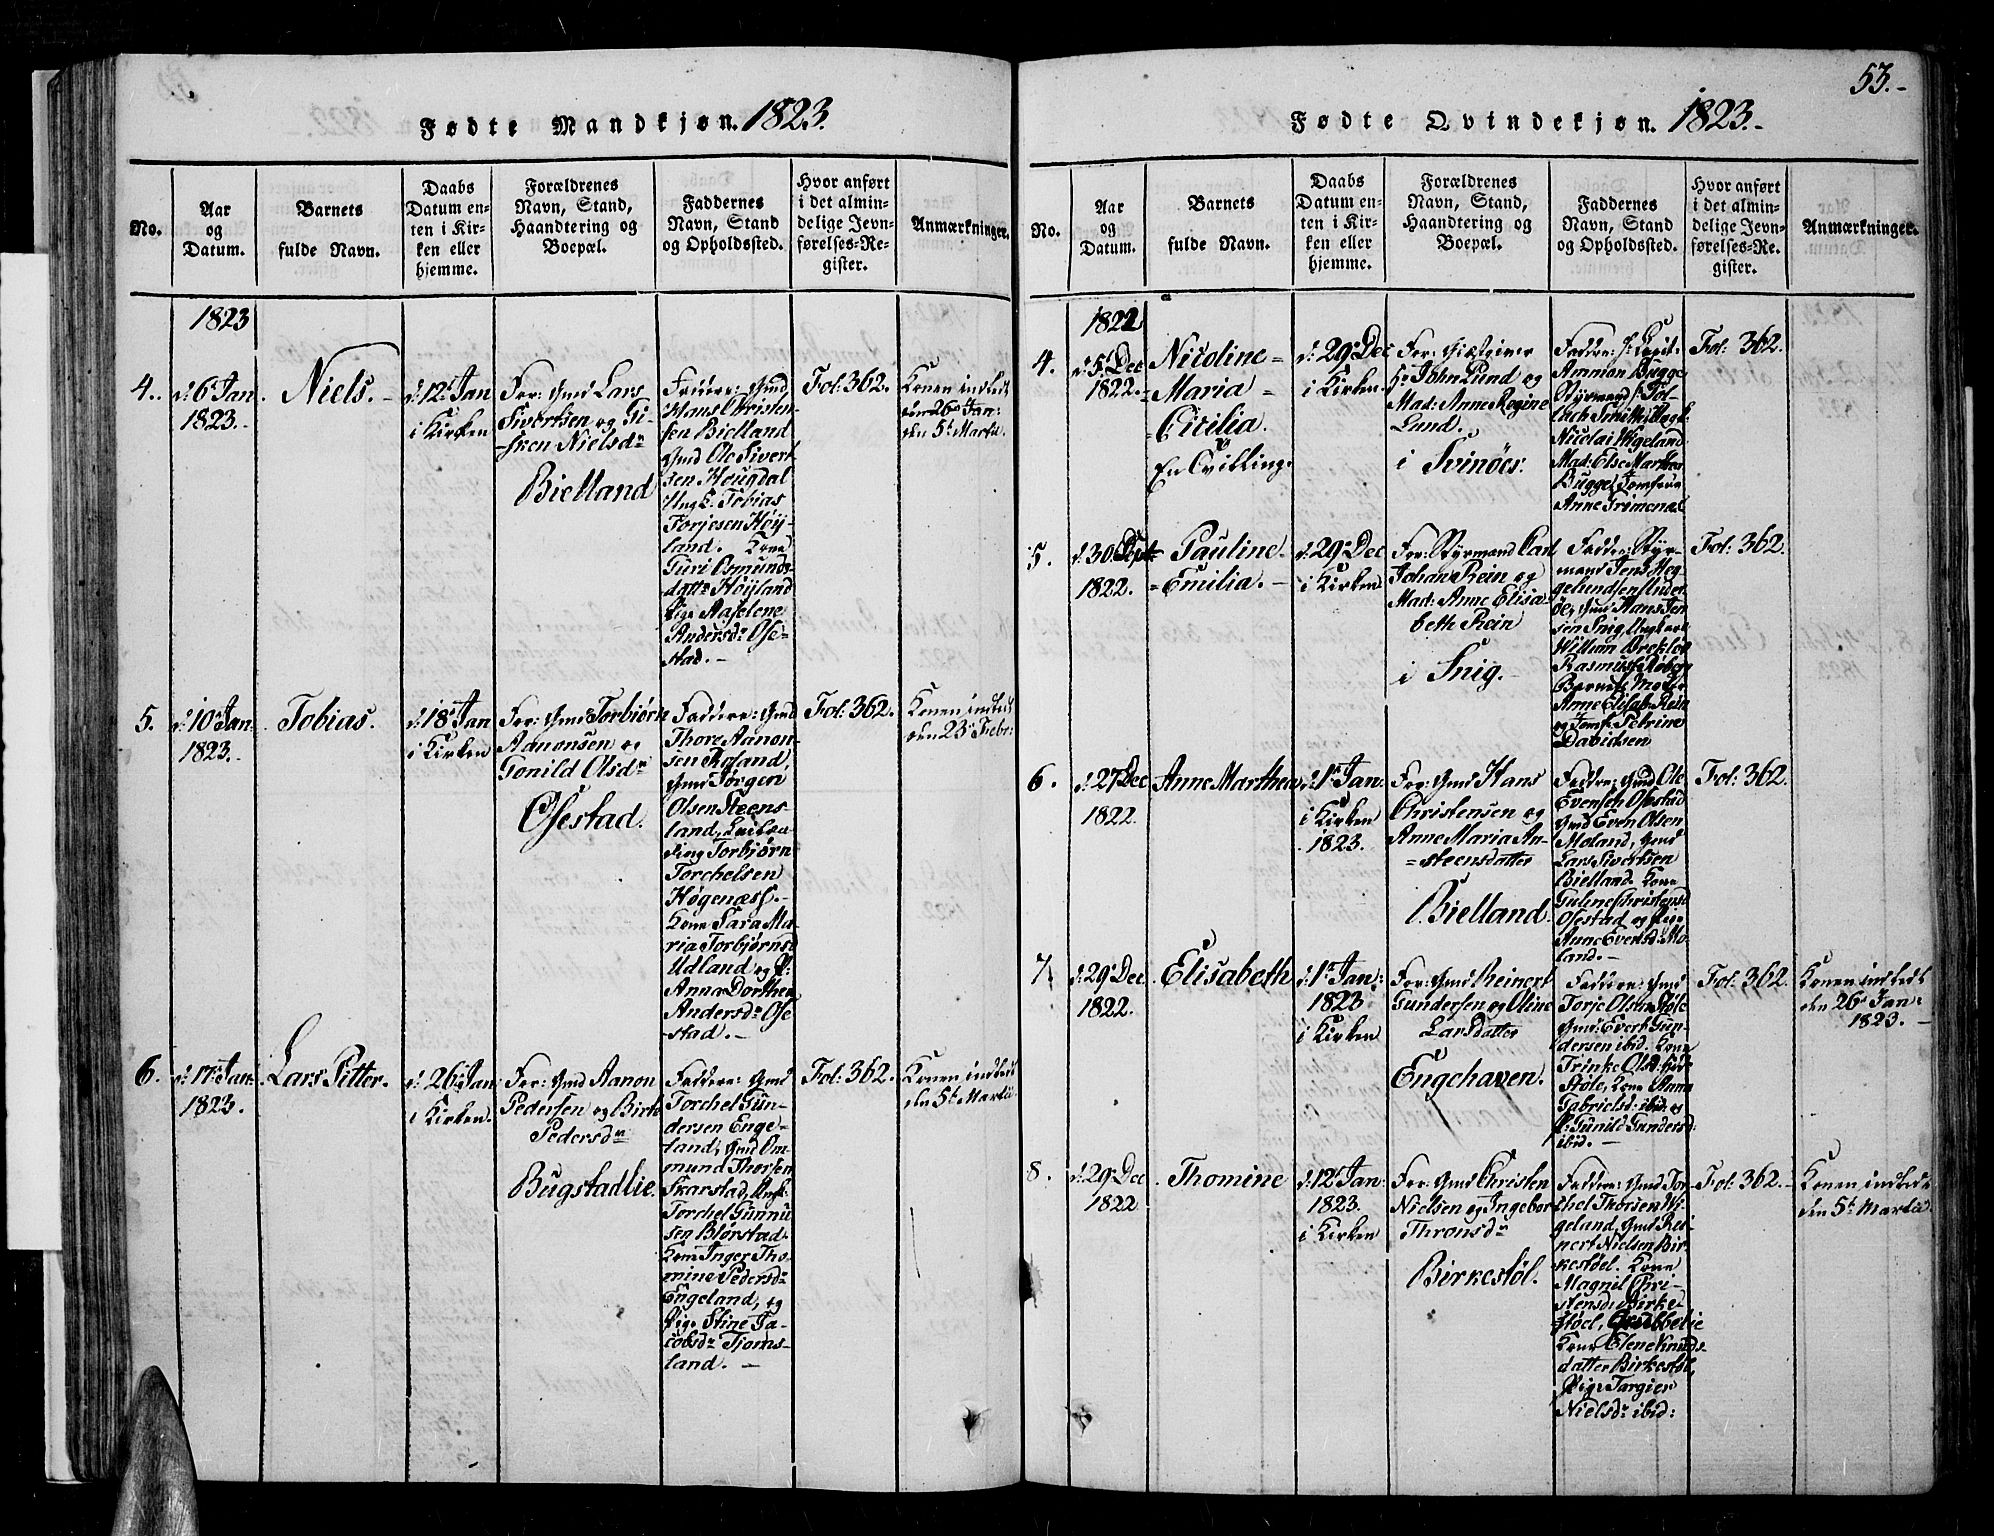 Fødte Mandkjøn. 1823.
No.
Aar
og
Datum.
Barnets
fulde Navn.
Daabs
Datum en-
ten i Kir-
ken eller
hjemme.
Forældrenes
Navn, Stand,
Haandtering og
Boepæl.
Faddernes
Navn, Stand
og Opholdssted.
Hvor anført
i det almin-
delige Jevn-
førelses-Re-
gister.
Anmærkninger.
1823
4.
d: 6t Jan
1823.
Niels.
d: 12t Jan
i Kirken
For: Gmd Lars
Sivertsen og Gi-
sken Nielsdr
Bielland
Faddere: Gmd
Hans Christen-
sen Bielland
Gmd Ole Sivert
sen Hougdal
Ungk. Tobias
Torjesen Höy-
land. Kone
Guri Osmunds
dattr Höyland
Pige Aaselene
Andersdr Ose-
stad.
Fol: 362.
Konen indledt
den 26de Jan:
den 5t Martii.
5.
d: 10t Jan
1823.
Tobias.
d: 18t Jan
i Kirken
For: Gmd Torbiörn
Aanonsen og
Gonild Olsdr
Osestad.
Faddere: Gmd
Thore Aanon-
sen Roland,
Gmd Jörgen
Olsen Steens-
land,
Torbjörn
Torchelsen
Høgenæss.
Kone Sara Ma-
ria Torbjörnsd
Udland og P:
Anna Dorthea
Andersdr Ose
stad.
Fol: 362.
Konen indledt
den 23de Febr:
6.
d: 17t Jan:
1823.
Lars Pitter.
d: 26t Jan
i Kirken.
For: Gmd Aanon
Pedersen og Birte
Pedersdr
Bugstadlie.
Faddere: Gmd
Torchel Gun-
dersen Enge-
land, Gmd Om-
mund Thorsen
Skarstad, Ungk:
Torchel Gunnu
sen Blørstad.
Kone Inger Tho-
mine Pedersdr
Engeland, og
Pige Stine Ja-
cobsdr Tjoms-
land.
Fol: 362.
Konen indledt
den 5t Martii.
53.
Fødte Qvindekjøn. 1823.
No.
Aar
og
Datum.
Barnets
fulde Navn.
Daabs
Datum en-
ten i Kir-
ken eller
hjemme.
Forældrenes
Navn, Stand,
Haandtering og
Boepæl.
Faddernes
Navn, Stand
og Opholdssted.
Hvor anført
i det almin-
delige Jevn-
førelses-Re-
gister.
Anmærkninger.
1822
4.
d: 5t Dec
1822.
Nicoline
Maria
Cicilia.
En Tvilling.
d: 29de Dec
i Kirken.
For: Giæstgiver
Hr John Lund og
Mad: Anne Regine
Lund.
i Svinöer.
Faddere: Hr Capit:
Amman Bugge
Styrmand
Nicolai Wigeland
Mad: Else Marthea
Bugge, Jomfrue
Anne
Fol: 362.
5.
d: 30 Sept
1822.
Pauline
Emilia.
d: 29de Dec
i Kirken
For: Styrmand Carl
Johan Rein og
Mad: Anne Elisa
beth Rein
i Snig.
Faddere: Styr-
mand Jens Heg-
gelundsen Under
öe, Gmd Hans Jen
sen Snig, Ungkarl
William
Rasmus
Barnets Moder
Anne Elisab. Rein
og Jomfr. Petrine
Davidsen
Fol: 362.
6.
d: 27 Dec
1822.
Anne Marthea
d: 1t Jan
i Kirken
1823.
For: Gmd Hans
Christensen og
Anne Maria An-
steensdatter
Bielland.
Faddere: Gmd Ole
Evensen Osestad
Gmd Even Olsen
Moland, Gmd
Lars Sivertsen
Bielland. Kone
Guline Christensd
Osestad og Pige
Anne Evensdr Mo-
land.
Fol: 362.
7.
d: 29de Dec
1822.
Elisabeth
d: 1t Jan:
1823
i Kirken
For: Gmd Reinert
Gundersen og Oline
Larsdatter
Engehaven.
Faddere: Gmd
Torje Olsen Støle
Gmd: Evert Gun-
dersen ibid. Kone
Trinke Olsdr
Støle, Kone Anna
Gabrielsd: ibid. og
P: Gunild Gundersd:
ibid.
Fol: 362.
Konen indledt
den 26de Jan:
1823.
8.
d: 29de Dec
1822
Thomine
d: 12t Jan:
1823.
i Kirken
For: Gmd Christen
Nielsen og Ingebor
Thronsdr
Birkestöl.
Faddere: Gmd Tor-
chel Thorsen Wi-
geland, Gmd Rei-
nert Nielsen Bir-
kestöel. Kone
Magnil Chri-
stensdr Birke-
stöel,
Kone Elene Knuds-
datter Birkestöl,
Pige Targier
Nielsdr ibid:
Fol: 362.
Konen indledt
den 5t Martii.